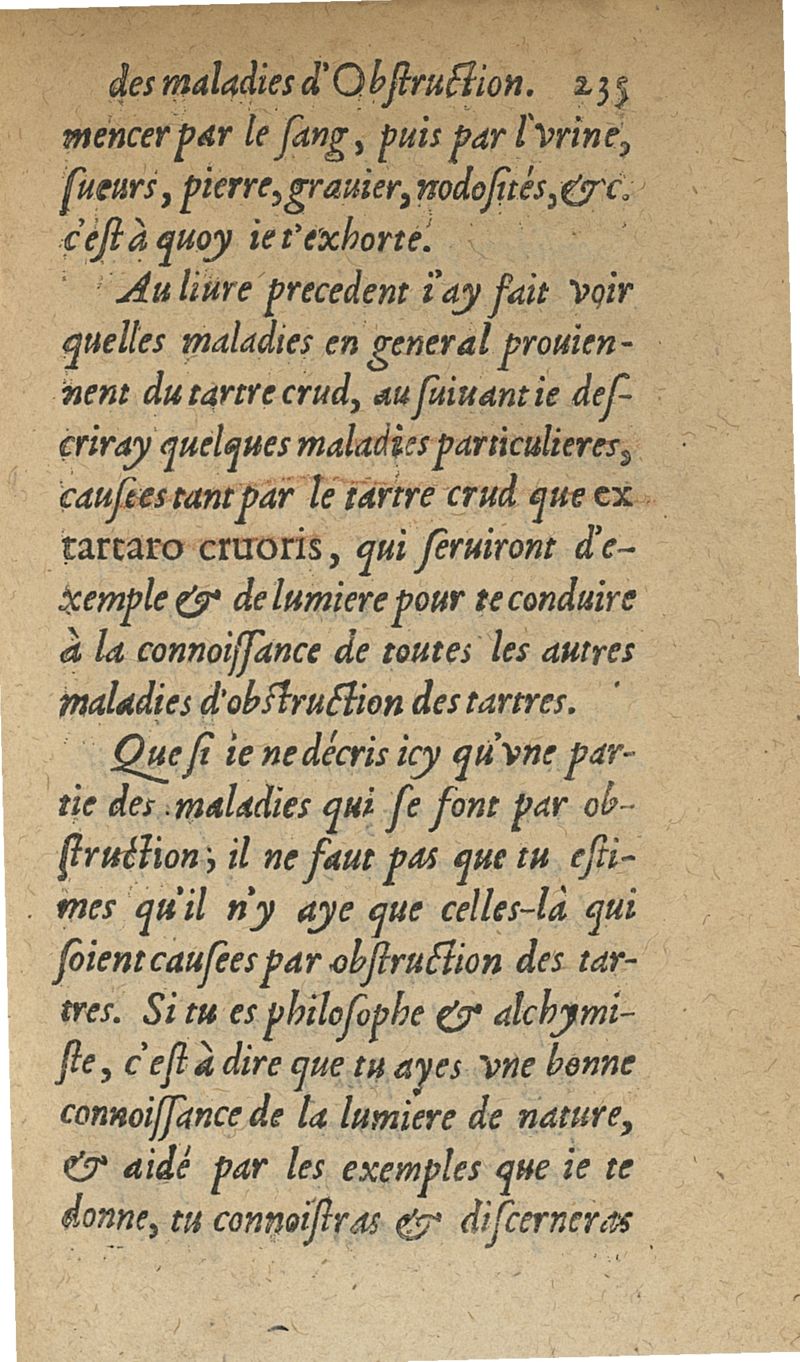 des maladies d'Obſtruction. 235
mencer par le ſang, puis par l'vrine,
ſueurs, pierre, grauier, nodoſités, &c.
c'eſt à quoy ie t'exhorte.
Au liure precedent i'ay fait voir
quelles maladies en general prouien-
nent du tartre crud, au ſuiuant ie deſ-
criray quelques maladies particulieres,
cauſees tant par le tartre crud que ex
tartaro cruoris, qui ſeruiront d'e-
xemple & de lumiere pour te conduire
à la connoiſſance de toutes les autres
maladies d'obſtruction des tartres.
Que ſi ie ne décris icy qu'vne par-
tie des maladies qui ſe font par ob-
ſtruction; il ne faut pas que tu eſti-
mes qu'il n'y aye que celles-là qui
ſoient cauſees par obſtruction des tar-
tres. Si tu es philoſophe & alchymi-
ſte, c'eſt à dire que tu ayes vne bonne
connoiſſance de la lumiere de nature,
& aidé par les exemples que ie te
donne, tu connoiſtras & diſcerneras